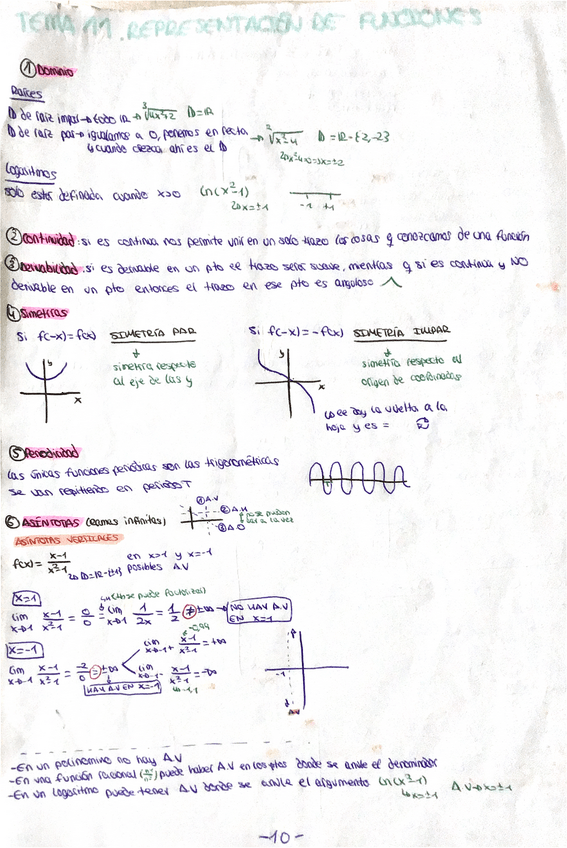 TEMA 11. REPRESENTACIÓN DE FUNCIONES
① Dominio
Raíces
D de raíz impar → todo ℝ → ∛(4x²+2) D=ℝ
D de raíz par → igualamos a 0, ponemos en recta → ²√(x²-4) D=ℝ-{2,-2}
↳ cuando crezca ahí es el D
x²-4=0 → x=±2
Logaritmos
solo están definida cuando x>0 ln(x²-1)
↳ x=±1 -1 +1
② Continuidad: si es continua nos permite unir en un solo trazo las cosas q conozcamos de una función
③ Derivabilidad: si es derivable en un pto ee trazo será suave, mientras q si es continua y NO
derivable en un pto entonces el trazo en ese pto es anguloso
④ Simetrías
Si f(-x)=f(x) SIMETRÍA PAR Si f(-x)=-f(x) SIMETRÍA IMPAR
simetría respecto simetría respecto al
al eje de las y origen de coordenadas
y x y x
le doy la vuelta a la
hoja y es =
⑤ Periodicidad
Las únicas funciones periódicas son las trigonométricas
Se van repitiendo en periodo T
⑥ ASÍNTOTAS (ramas infinitas) ① A.V ② A.H ③ A.O no se pueden dar a la vez
ASÍNTOTAS VERTICALES
f(x)= (x-1)/(x²-1) en x=1 y x=-1
↳ D=ℝ-{±1} posibles A.V
x=1 (tbse puede factorizar)
lim x→1 (x-1)/(x²-1) = 0/0 = lim x→1 1/2x = 1/2 ≠ ±∞ → NO HAY A.V EN x=1
x=-1 -0,99
lim x→-1⁺ (x-1)/(x²-1) = +∞
lim x→-1 (x-1)/(x²-1) = -2/0 = ±∞
lim x→-1⁻ (x-1)/(x²-1) = -∞
HAY A.V EN x=-1 ↳ -1,1
-1 A.V
-En un polinomio no hay A.V
-En una función racional puede haber A.V en los ptos donde se anule el denominador
-En un logaritmo puede tener A.V donde se anule el argumento ln(x²-1) A.V → x=±1
↳ x=±1
-10-